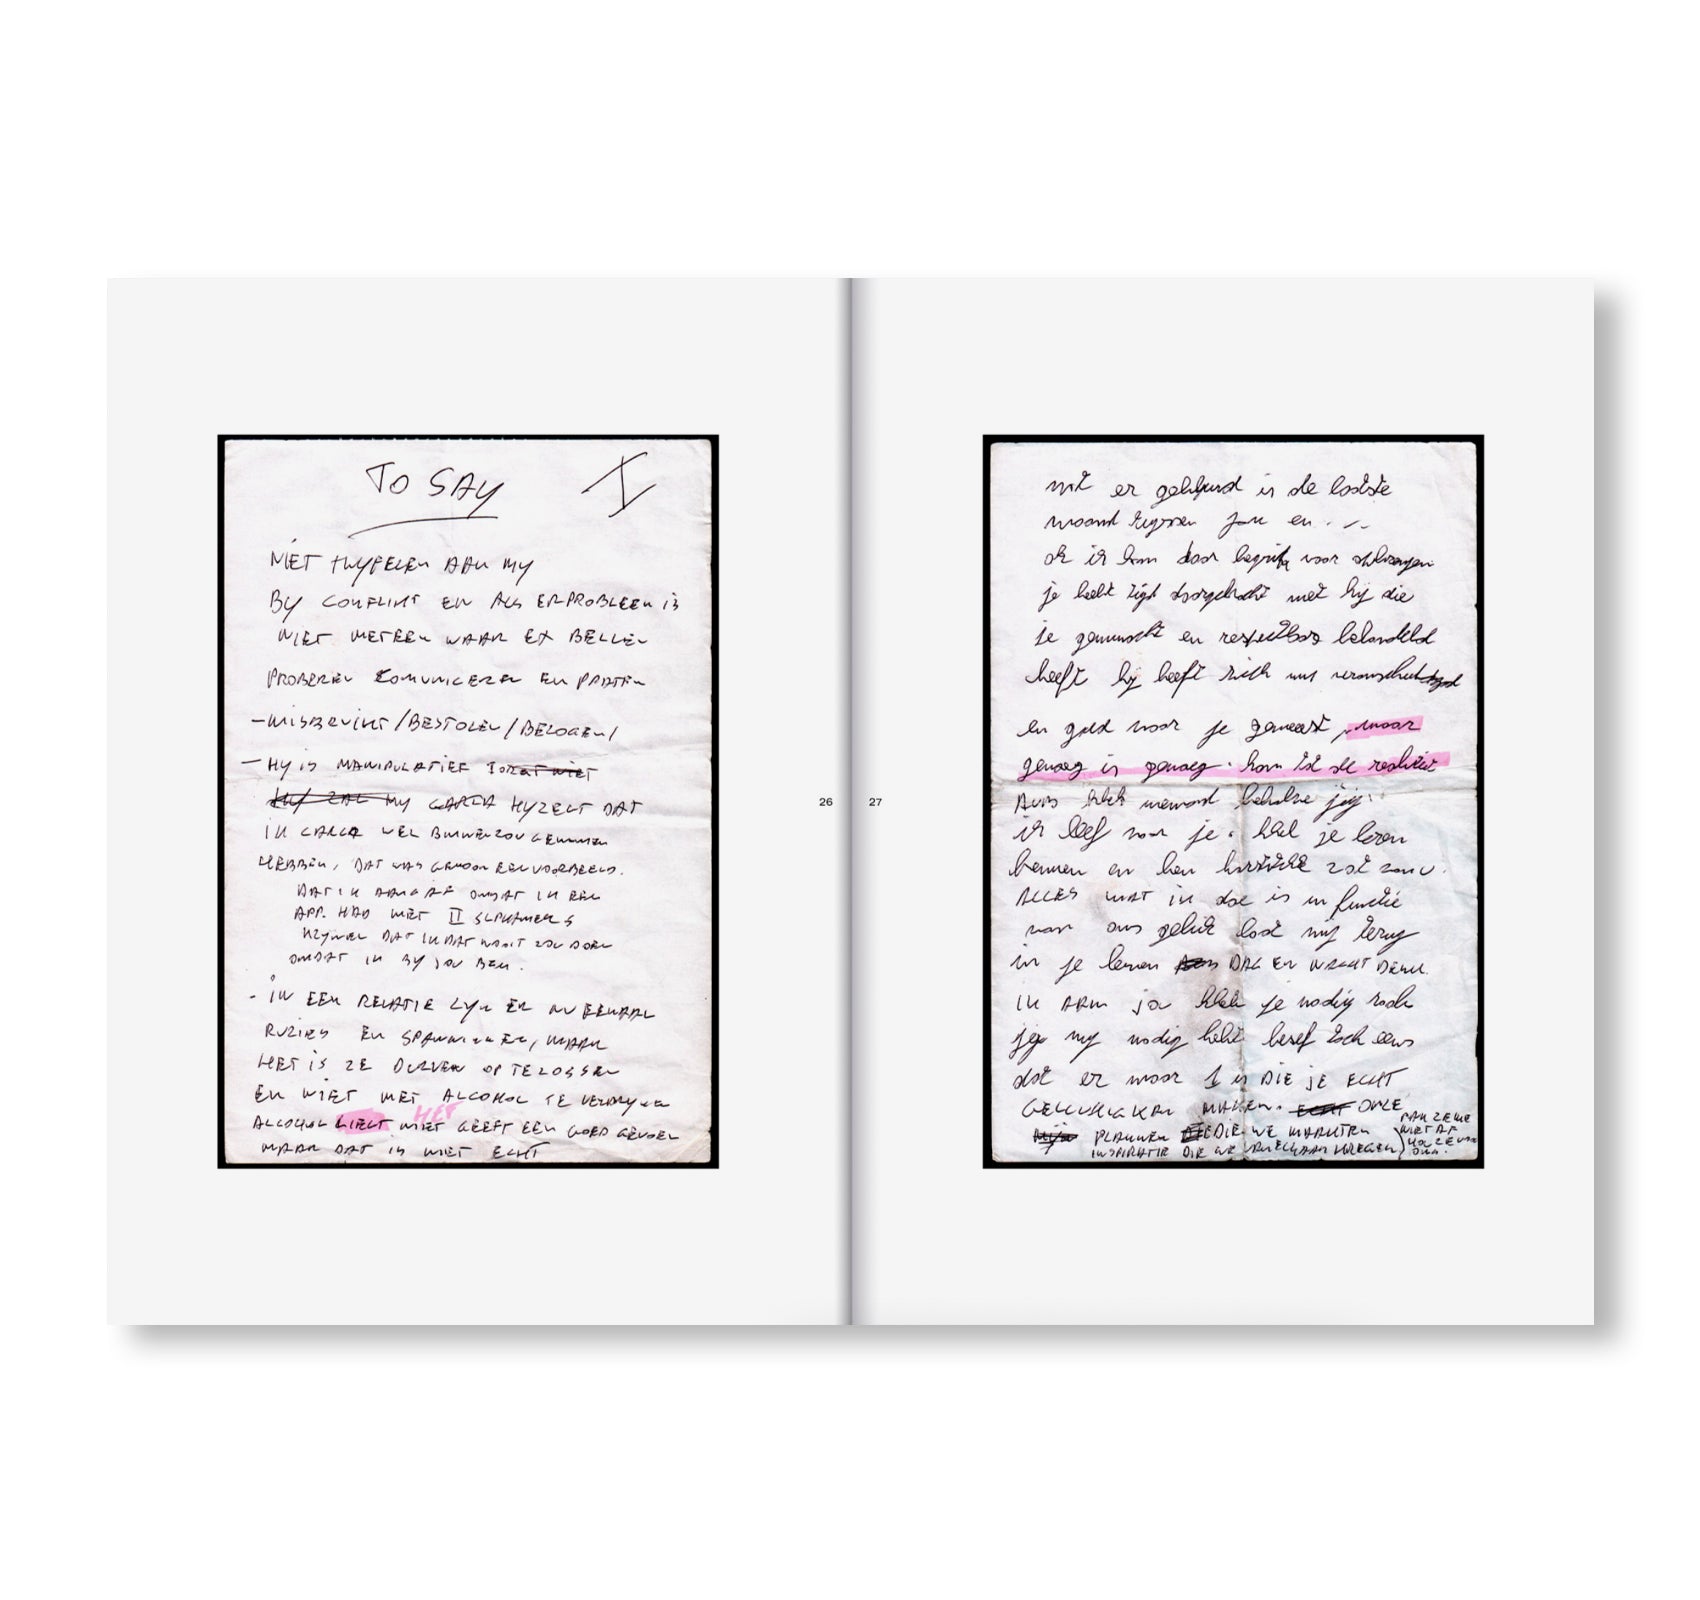 TO SAY I
NIET TWYFELEN AAN MY
BY CONFLIKT EN ALS ER PROBLEEM IS
NIET METEEN NAAR EX BELLEN
PROBEREN COMUNICEREN EN PRATEN
- MISBRUIKT / BESTOLEN / BELOGEN /
- HY IS MANIPULATIEF
MY CARLA HY ZEGT DAT
IK CARLA WEL BINNEN ZOU GENOMEN
HEBBEN, DAT WAS GEWOON EEN VOORBEELD.
DAT IK AANGAF OMDAT IK EEN
APP. HAD MET II SLPKAMERS
DAT IK DAT NOOIT ZOU DOEN
OMDAT IK BY JOU BEN.
- IN EEN RELATIE ZYN ER NU EENMAAL
RUZIES EN SPANNINGEN, MAAR
HET IS ZE DURVEN OP TE LOSSEN
EN NIET MET ALCOHOL TE VERDRYVEN
HET
ALCOHOL LIEGT NIET GEEFT EEN GOED GEVOEL
MAAR DAT IS NIET ECHT
26
27
wat er gebeurd is de laatste
maand tussen jou en
ok ik kan daar begrip voor opbrengen
je hebt tijd doorgebracht met hij die
je gemunscht en respectbas behandeld
heeft hij heeft zich
en goed voor je geweest, maar
genoeg is genoeg. kom tot de realiteit
heb niemand behalve jij.
ik leef voor je. heb je leren
kennen en ken zot van u.
ALLES WAT ik doe is in functie
van ons geluk laat mij terug
in je leven DAG EN NACHT DENK
IK AAN ja heb je nodig zoals
jij mij nodig hebt besef toch eens
dat er maar 1 is DIE je ECHT
GELUKKIG KAN MAKEN. ECHT ONZE
PLANNEN DIE WE MAAKTEN
INSPIRATIE DIE WE VAN ELKAAR KREGEN